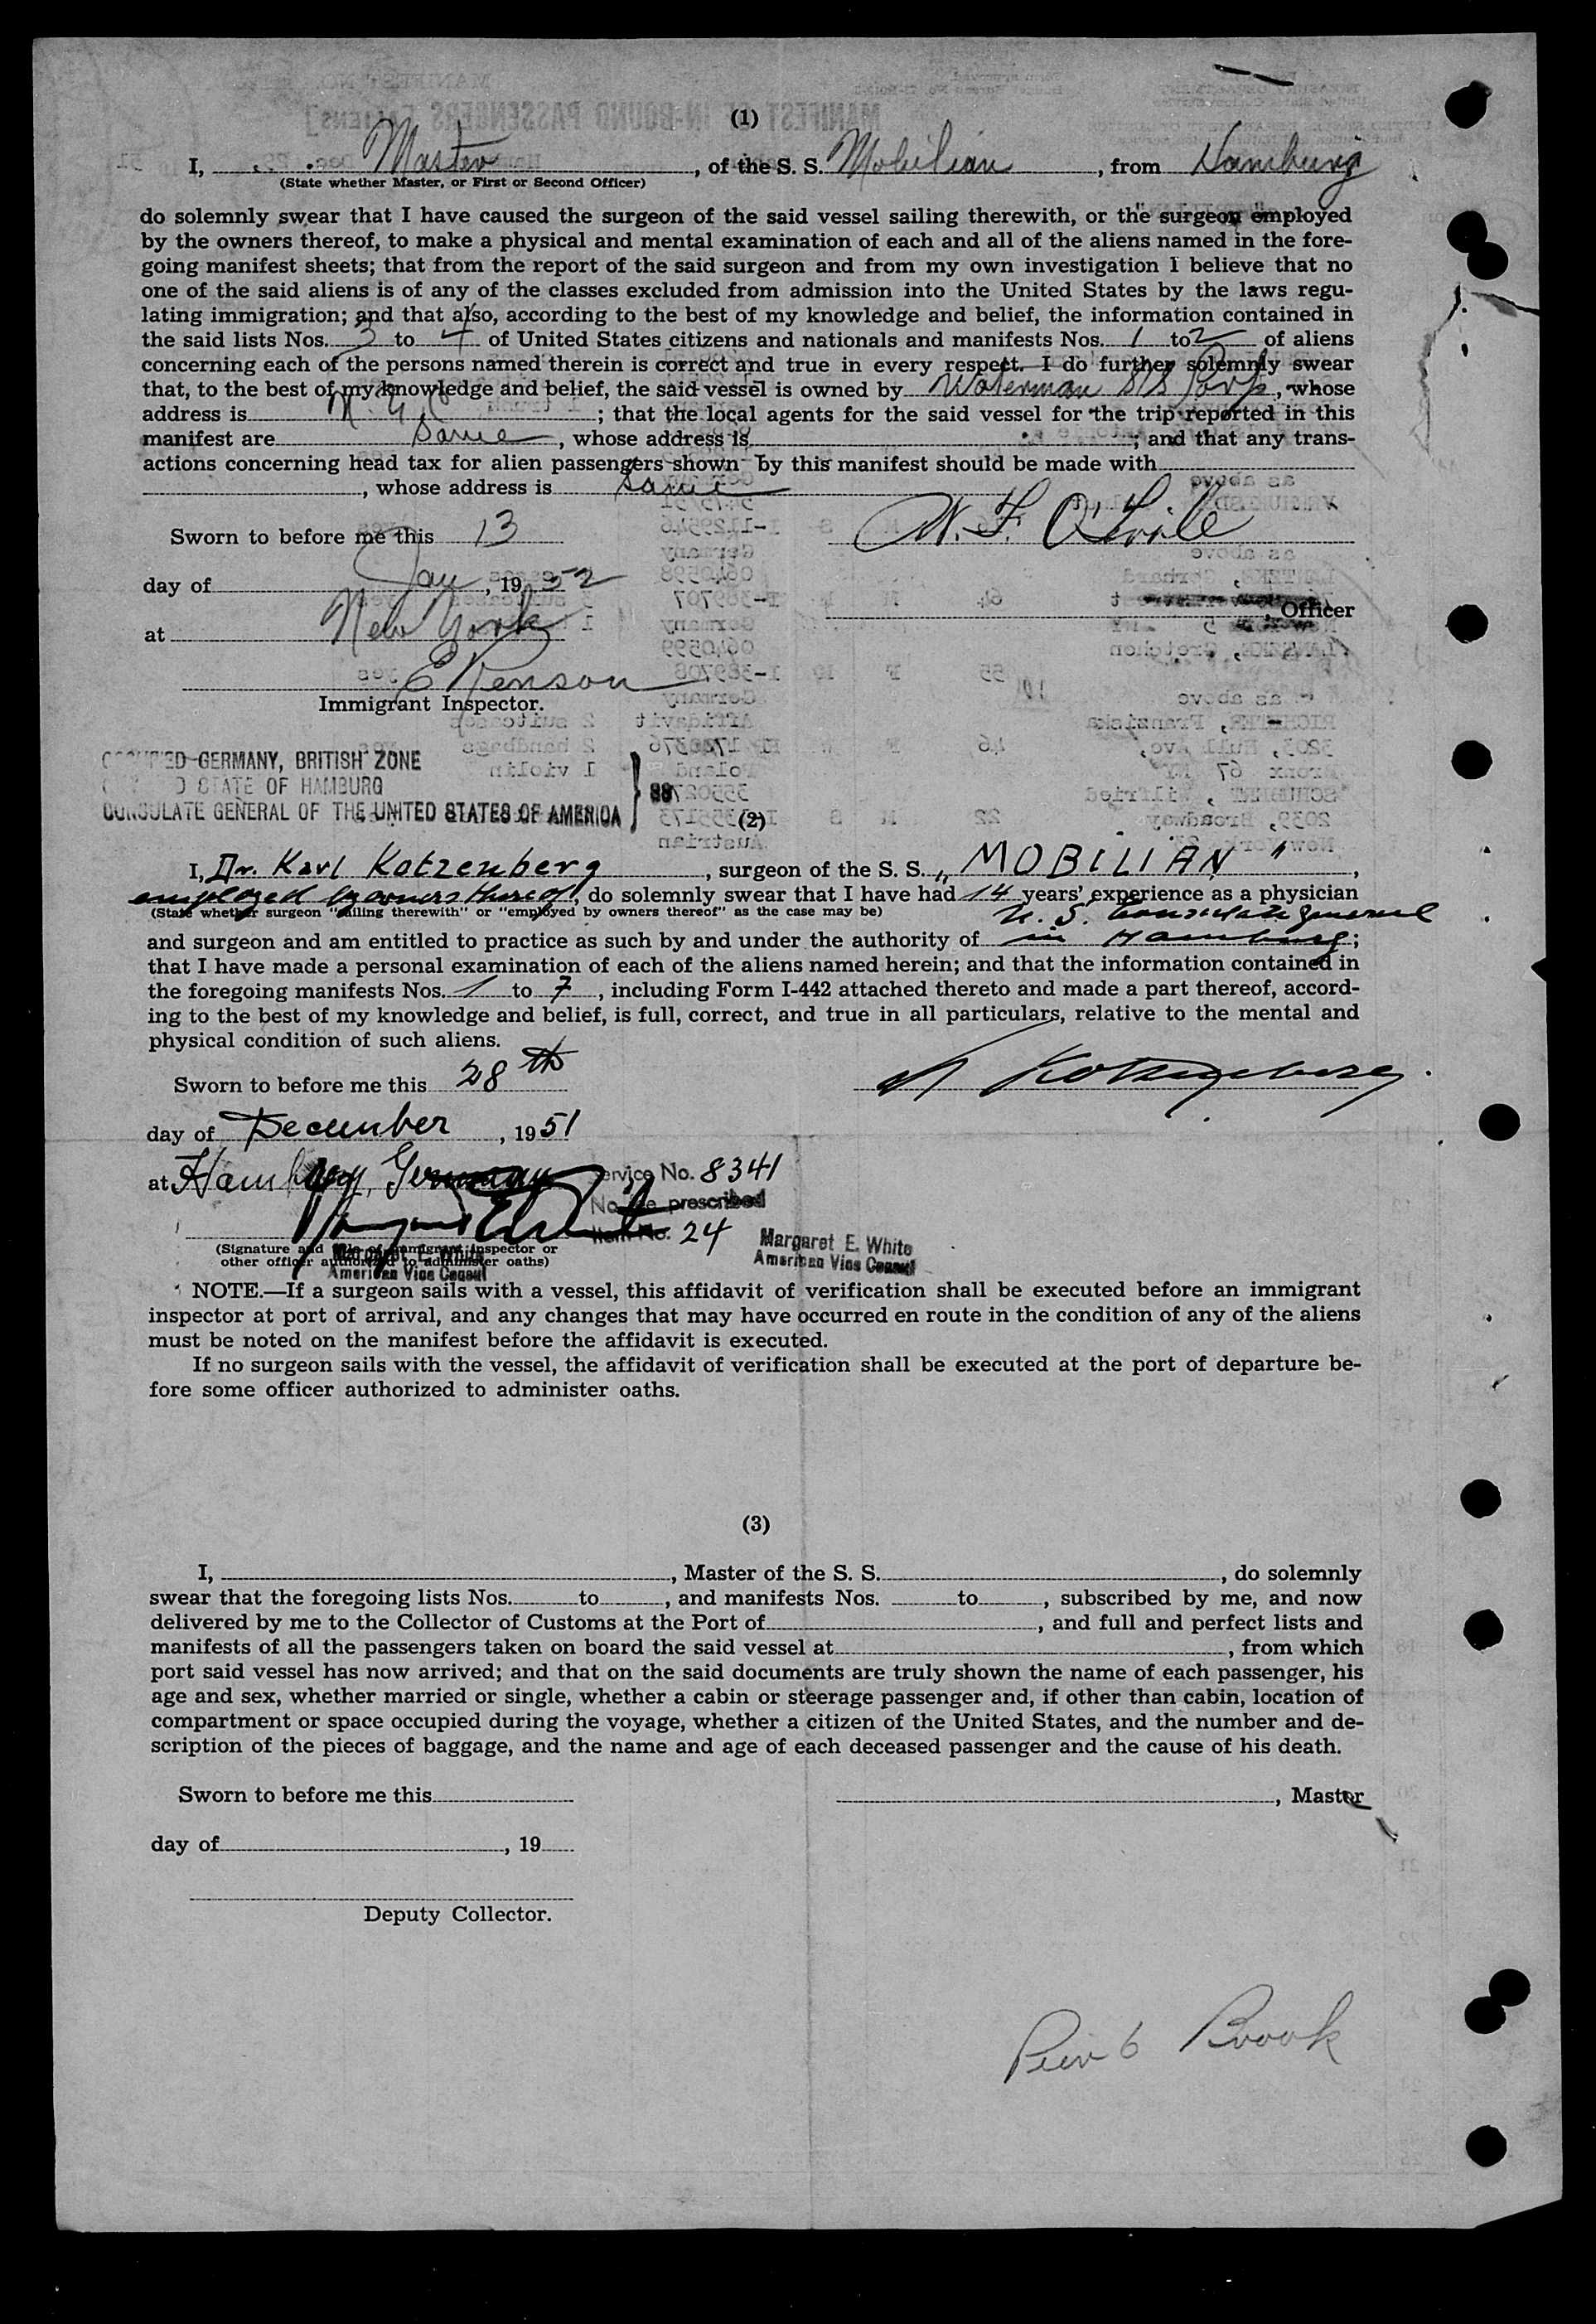 (1)
I, Master, of the S. S. Mobilian, from Hamburg
(State whether Master, or First or Second Officer)
do solemnly swear that I have caused the surgeon of the said vessel sailing therewith, or the surgeon employed
by the owners thereof, to make a physical and mental examination of each and all of the aliens named in the fore-
going manifest sheets; that from the report of the said surgeon and from my own investigation I believe that no
one of the said aliens is of any of the classes excluded from admission into the United States by the laws regu-
lating immigration; and that also, according to the best of my knowledge and belief, the information contained in
the said lists Nos. 3 to 4 of United States citizens and nationals and manifests Nos. 1 to 2 of aliens
concerning each of the persons named therein is correct and true in every respect. I do further solemnly swear
that, to the best of my knowledge and belief, the said vessel is owned by Waterman SS Corp, whose
address is N. Y. C; that the local agents for the said vessel for the trip reported in this
manifest are Same, whose address is ; and that any trans-
actions concerning head tax for alien passengers shown by this manifest should be made with
, whose address is Same
Sworn to before me this 13
day of Jan, 19 52
Officer
at New York
Immigrant Inspector.
GERMANY, BRITISH ZONE
STATE OF HAMBURG
CONSULATE GENERAL OF THE UNITED STATES OF AMERICA } SS
(2)
I, Dr. Karl Kotzenberg, surgeon of the S. S. „MOBILIAN",
employed by owners thereof, do solemnly swear that I have had 14 years' experience as a physician
(State whether surgeon "sailing therewith" or "employed by owners thereof" as the case may be)
U. S. Consulate General
and surgeon and am entitled to practice as such by and under the authority of in Hamburg;
that I have made a personal examination of each of the aliens named herein; and that the information contained in
the foregoing manifests Nos. 1 to 7, including Form I-442 attached thereto and made a part thereof, accord-
ing to the best of my knowledge and belief, is full, correct, and true in all particulars, relative to the mental and
physical condition of such aliens.
Sworn to before me this 28th
K Kotzenberg.
day of December, 1951
at Hamburg, Germany
Service No. 8341
No fee prescribed
Item No. 24
Margaret E. White
American Vice Consul
(Signature and title of immigrant inspector or
other officer authorized to administer oaths)
Margaret E. White
American Vice Consul
NOTE.—If a surgeon sails with a vessel, this affidavit of verification shall be executed before an immigrant
inspector at port of arrival, and any changes that may have occurred en route in the condition of any of the aliens
must be noted on the manifest before the affidavit is executed.
If no surgeon sails with the vessel, the affidavit of verification shall be executed at the port of departure be-
fore some officer authorized to administer oaths.
(3)
I, , Master of the S. S. , do solemnly
swear that the foregoing lists Nos. to , and manifests Nos. to , subscribed by me, and now
delivered by me to the Collector of Customs at the Port of , and full and perfect lists and
manifests of all the passengers taken on board the said vessel at , from which
port said vessel has now arrived; and that on the said documents are truly shown the name of each passenger, his
age and sex, whether married or single, whether a cabin or steerage passenger and, if other than cabin, location of
compartment or space occupied during the voyage, whether a citizen of the United States, and the number and de-
scription of the pieces of baggage, and the name and age of each deceased passenger and the cause of his death.
Sworn to before me this
, Master
day of , 19
Deputy Collector.
Pier 6 Brook